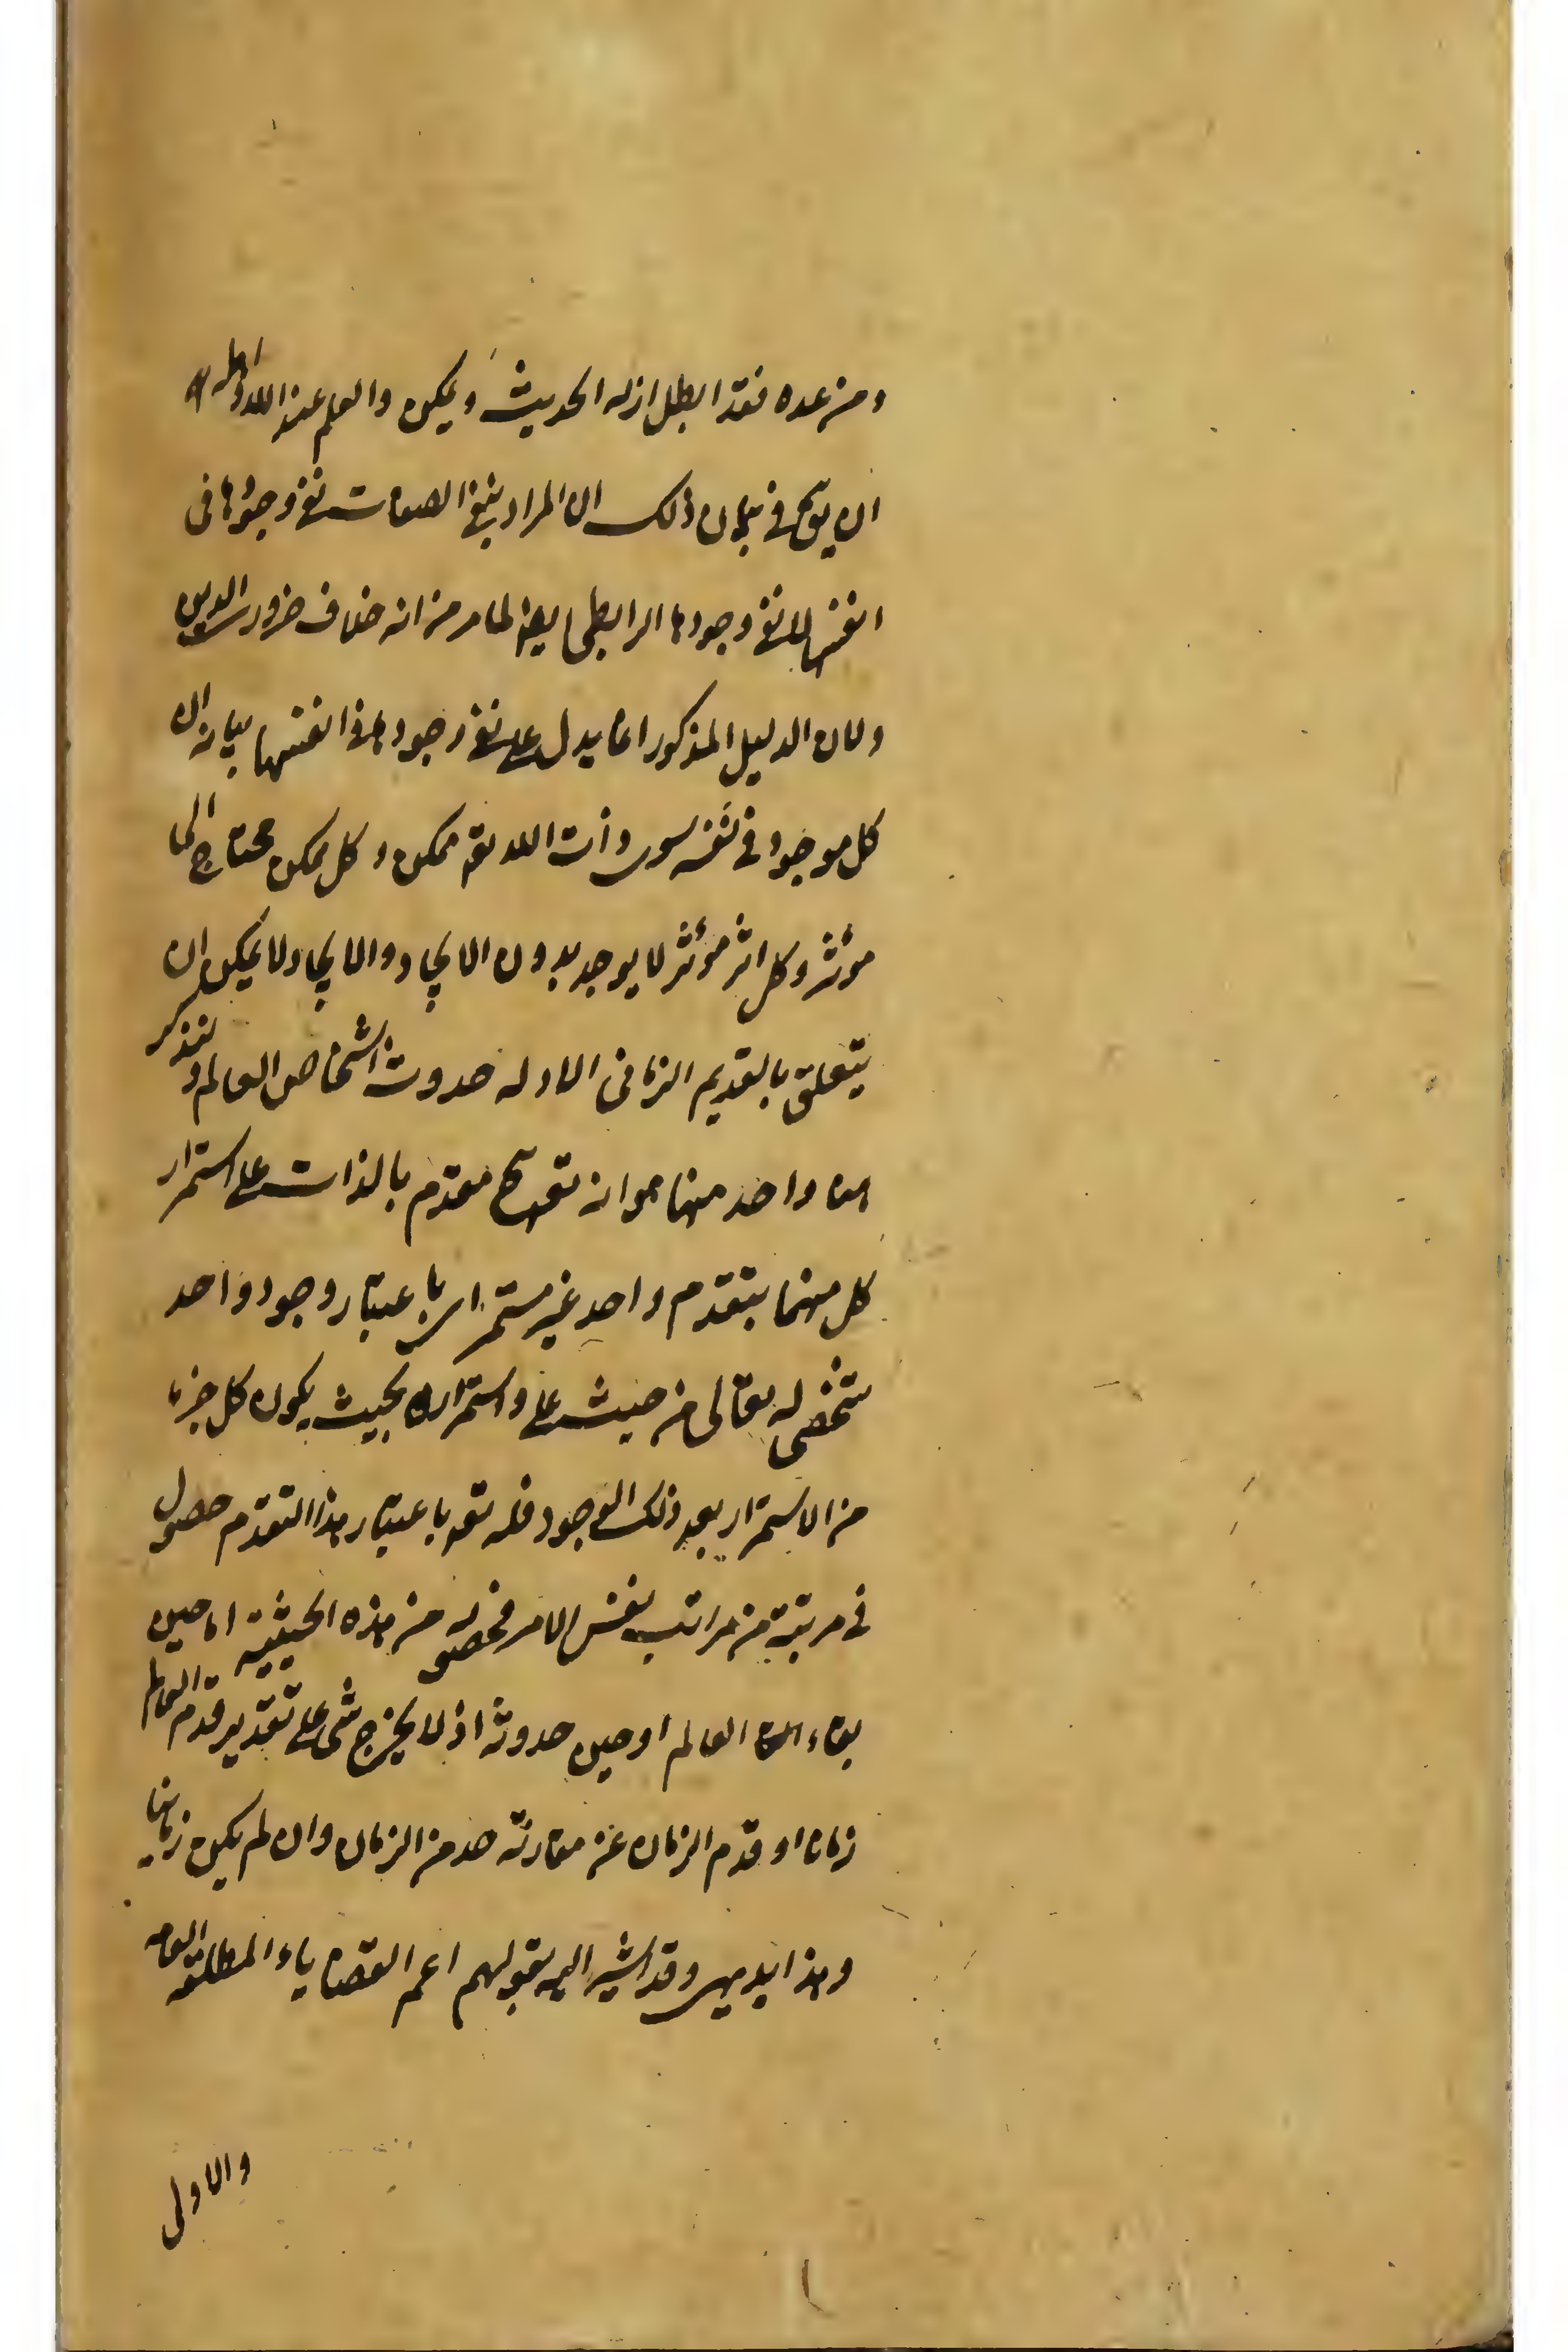 ومن عده فقد ابطل ازله الحديث ويمكن والعلم عند الله واهله
ان يوجّه في بيان ذلك ان المراد بنفي الصفات نفي وجودها في
انفسها لا نفي وجودها الرابطي ايضا لما مر من انه خلاف ضرورة الدين
ولان الدليل المذكور انما يدل على نفي وجودها في انفسها بيانه ان
كل موجود في نفسه سوى ذات الله تعه ممكن وكل ممكن محتاج الى
مؤثر وكل اثر مؤثر لا يوجد بدون الايجاد والايجاد لا يمكن ان
يتعلق بالقديم الزماني الاوله حدوث اشخاص العالم ولنذكر
واحد منها هو انه تعه متقدم بالذات على استمرار
كل منهما بتقدم واحد غير مستمر اي باعتبار وجود واحد
شخصي له تعالى من حيث على واستمراره بحيث يكون كل جزء
من الاستمرار بعد ذلك الوجود فله تعه باعتبار هذا التقدم حصول
في مرتبة من مراتب نفس الامر فحصوله من هذه الحيثية اما حين
بقاء العالم او حين حدوثه اذ لا يخرج شي على تقدير قدم العالم
زمانا او قدم الزمان عن مقارنة حد من الزمان وان لم يكن زمانيا
وهذا بديهي وقد اشير اليه بقولهم اعم القضايا المطلقة العامه
والاولى